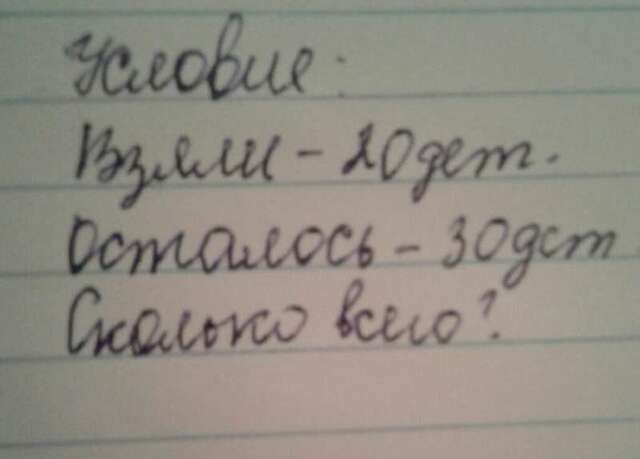 Условие:
Взяли - 20дет.
Осталось - 30дет
Сколько всего?